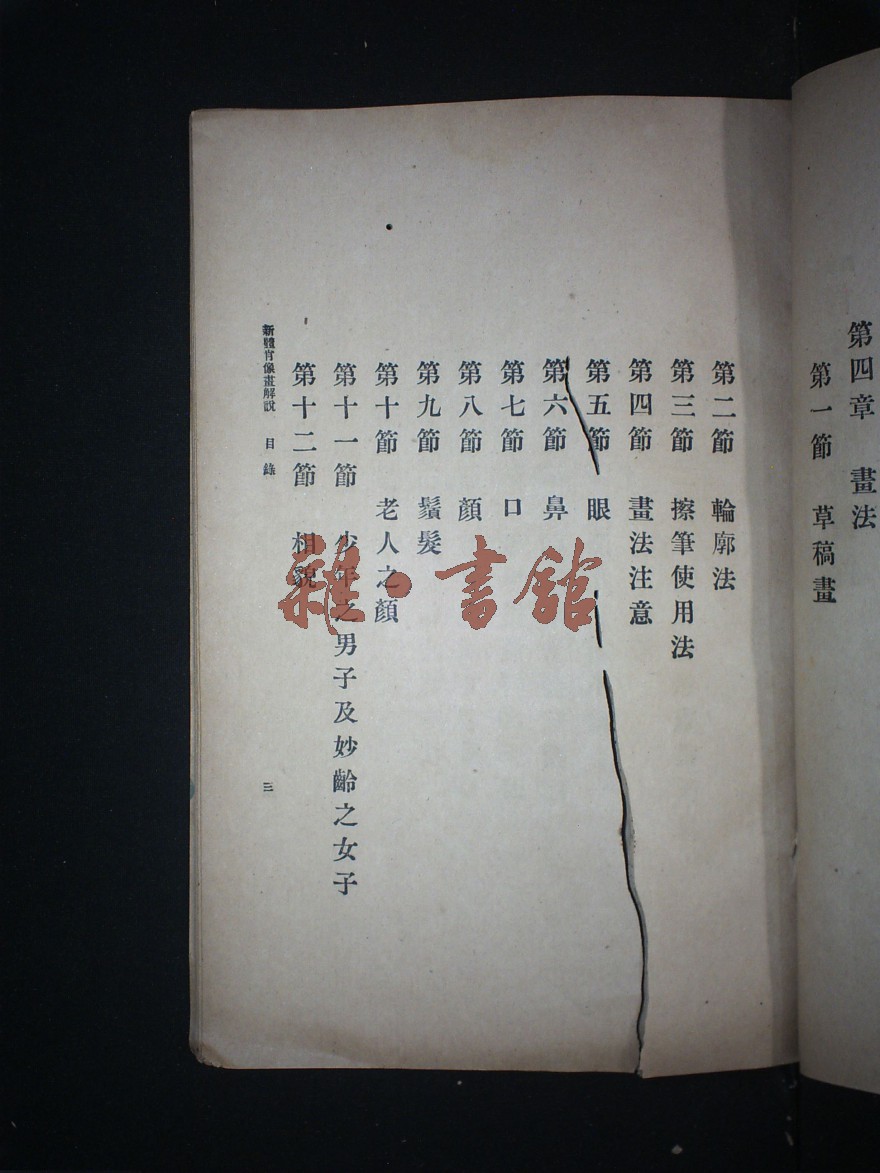 第四章 畫法
第一節 草稿畫
第二節 輪廓法
第三節 擦筆使用法
第四節 畫法注意
第五節 眼
第六節 鼻
第七節 口
第八節 顏
第九節 鬚髮
第十節 老人之顏
第十一節 少年之男子及妙齡之女子
第十二節 相貌
新體肖像畫解說 目錄 三
雜·書館